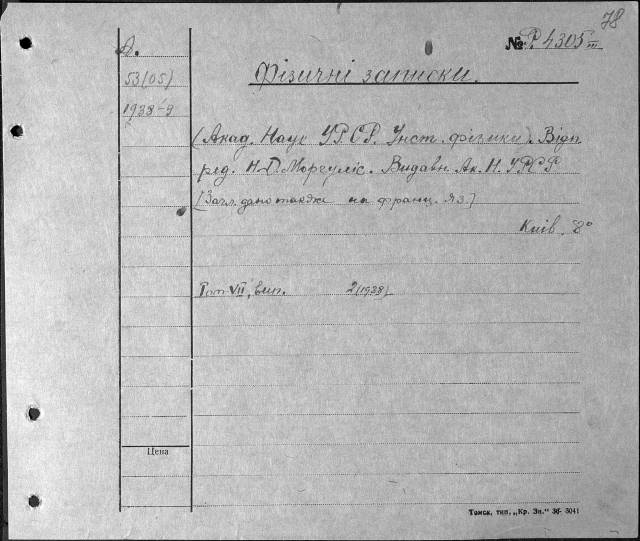 78
А.
№ Р. 4305 III
53(05)
Фізичні записки.
1938-9
(Акад. Наук УРСР. Інст. фізики). Відп
ред. Н. Д. Моргуліс. Видавн. Ак. Н. УРСР
[Загл. дано також на франц. яз.]
Київ. 8°
Том VII, вип. 2(1938)
Цена
Томск, тип. „Кр. Зн.“ 36- 5041